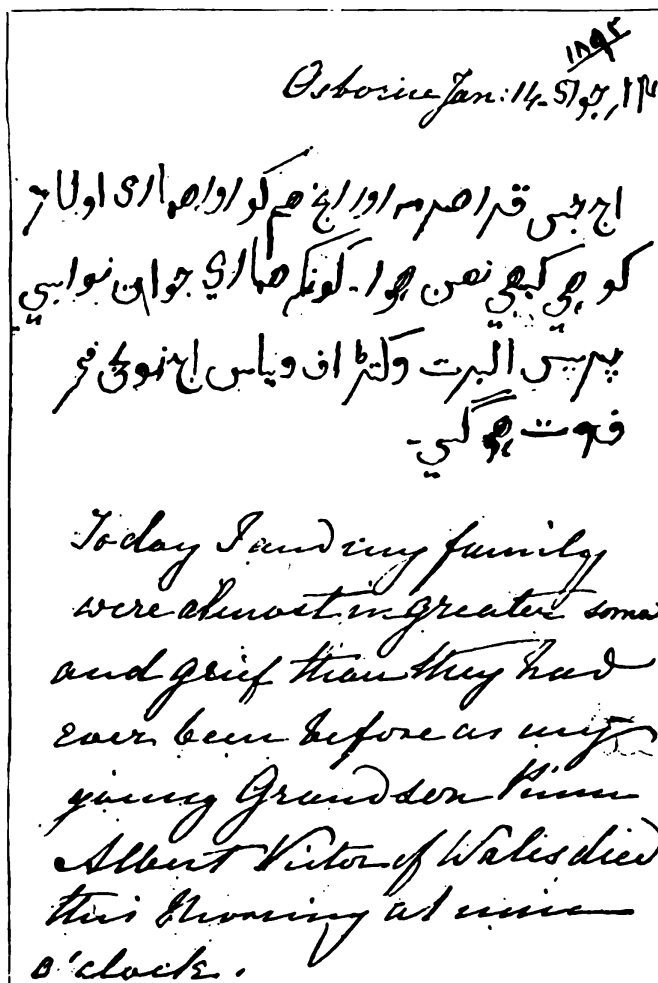 ۱۸۹۲
Osborne Jan: 14 -
اج جس قدر صدمہ اور رنج ھم کو اور ھماری اولاد
کو بھی کبھی نھن ھوا۔ کونکہ ھماری جوان نواسي
پرنس البرت وکٹر اف ویلس اج نو بجی فجر
فوت ھو گئي۔
Today I and my family
were almost in greater sorrow
and grief than they had
ever been before as my
young Grandson Prince
Albert Victor of Wales died
this Morning at nine
o'clock.